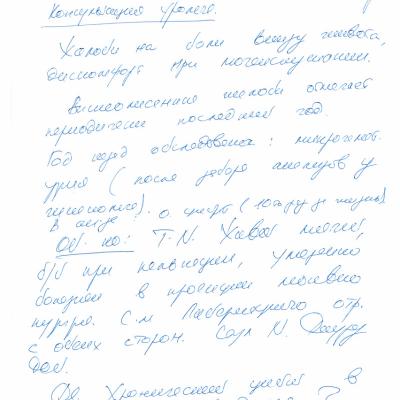 Консультация уролога.
Жалобы на боли внизу живота,
дискомфорт при мочеиспускании.
Вышеописанные жалобы отмечает
периодически последний год.
Год назад обследована: микрогемат
урия (после забора анализов у
гинеколога). о. цистит (
Об. но: T.N. Живот мягкий,
б/б при пальпации, умеренно
болезнен в проекции мочевого
пузыря. С-м Пастернацкого отр.
с обеих сторон. Стул N. Диурез
Ds. Хронический цистит в